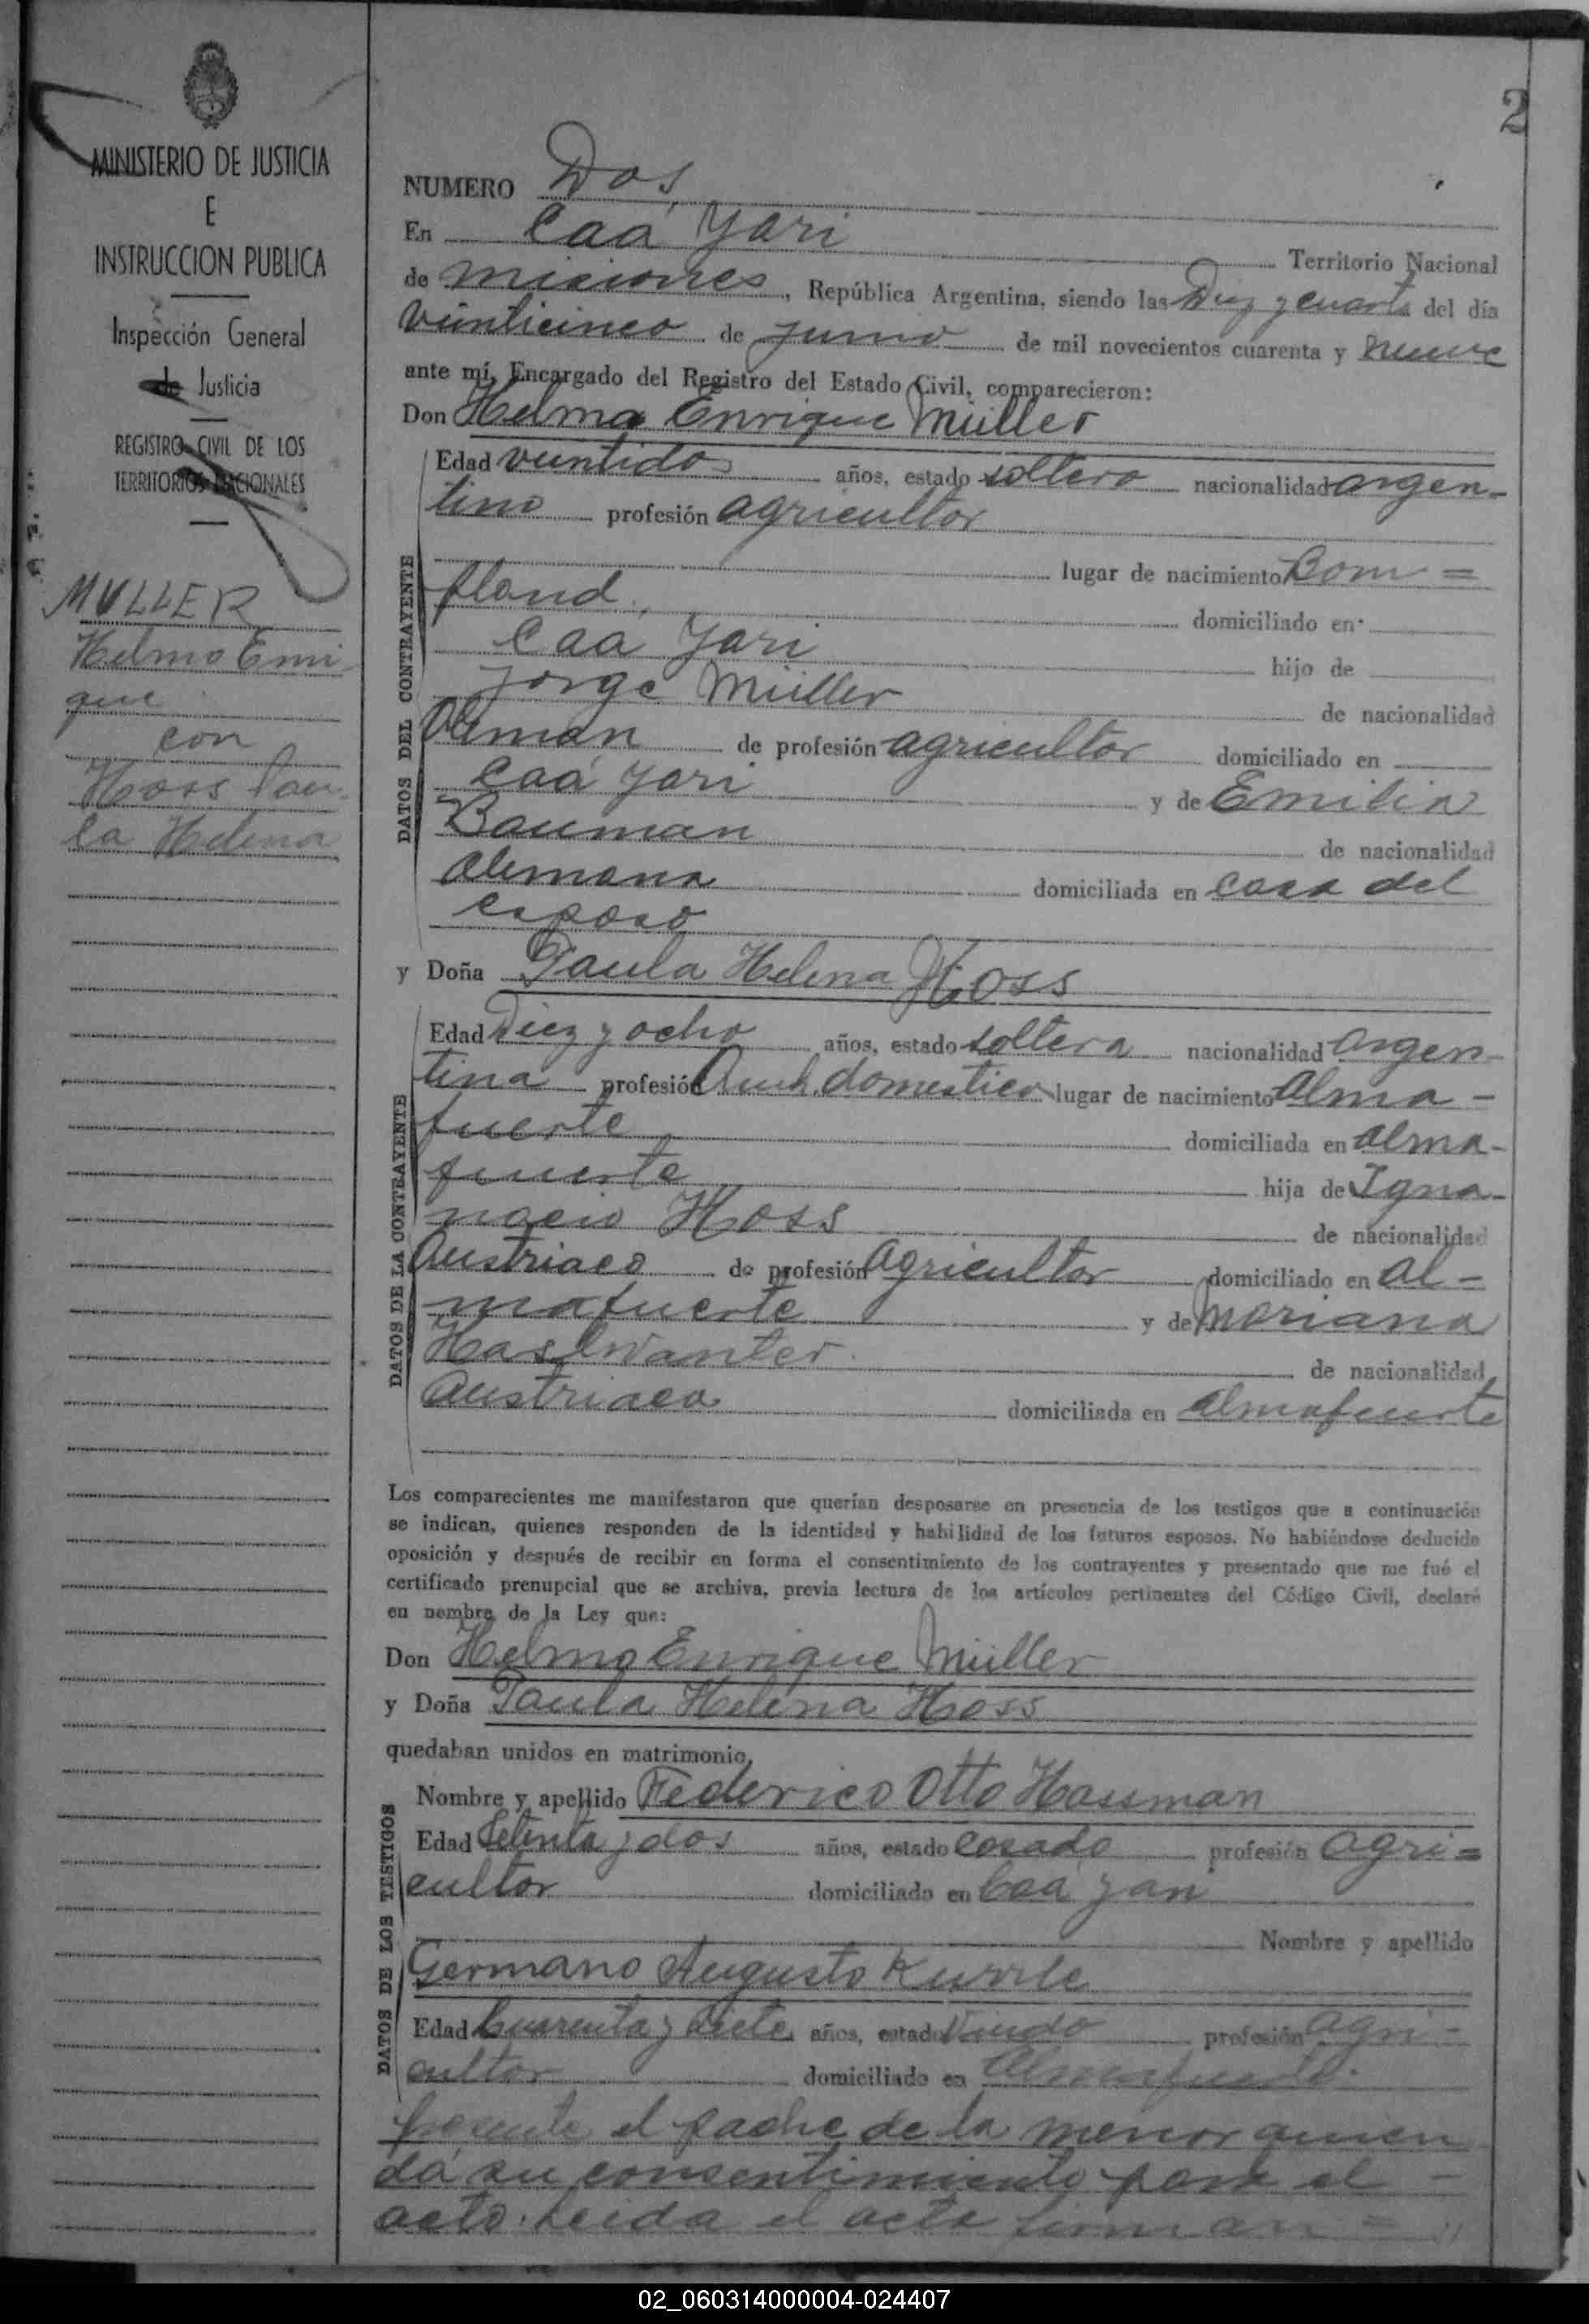 2
MINISTERIO DE JUSTICIA
E
INSTRUCCION PUBLICA
Inspección General
de Justicia
REGISTRO CIVIL DE LOS
TERRITORIOS NACIONALES
MULLER
Helmo Enri
que
con
Hoss Pau
la Helena
NUMERO Dos
En Caá Yari Territorio Nacional
de Misiones, República Argentina, siendo las Diez y cuarto del día
veinticinco de junio de mil novecientos cuarenta y nueve
ante mí, Encargado del Registro del Estado Civil, comparecieron:
Don Helmo Enrique Müller
DATOS DEL CONTRAYENTE
Edad veintidos años, estado soltero nacionalidad argen-
tino profesión agricultor
lugar de nacimiento Bom=
pland. domiciliado en
Caá Yari hijo de
Jorge Müller de nacionalidad
Aleman de profesión agricultor domiciliado en
Caá Yari y de Emilia
Bauman de nacionalidad
alemana domiciliada en casa del
esposo
y Doña Paula Helena Hoss
DATOS DE LA CONTRAYENTE
Edad Diez y ocho años, estado soltera nacionalidad argen-
tina profesión domestico lugar de nacimiento Alma-
fuerte domiciliada en Alma-
fuerte hija de Igna-
nacio Hoss de nacionalidad
Austriaco de profesión Agricultor domiciliado en Al=
mafuerte y de Mariana
Haslwanter de nacionalidad
Austriaca domiciliada en Almafuerte
Los comparecientes me manifestaron que querían desposarse en presencia de los testigos que a continuación
se indican, quienes responden de la identidad y habilidad de los futuros esposos. No habiéndose deducido
oposición y después de recibir en forma el consentimiento de los contrayentes y presentado que me fué el
certificado prenupcial que se archiva, previa lectura de los artículos pertinentes del Código Civil, declaré
en nombre de la Ley que:
Don Helmo Enrique Müller
y Doña Paula Helena Hoss
quedaban unidos en matrimonio.
DATOS DE LOS TESTIGOS
Nombre y apellido Federico Otto Hassman
Edad Setenta y dos años, estado casado profesión Agri=
cultor domiciliado en Caá Yari
Nombre y apellido
Germano Augusto Kurrle
Edad Cuarenta y siete años, estado Viudo profesión agri-
cultor domiciliado en Almafuerte.
presente el padre de la menor quien
dá su consentimiento para el -
acto. Leida el acta firman =
02_060314000004-024407